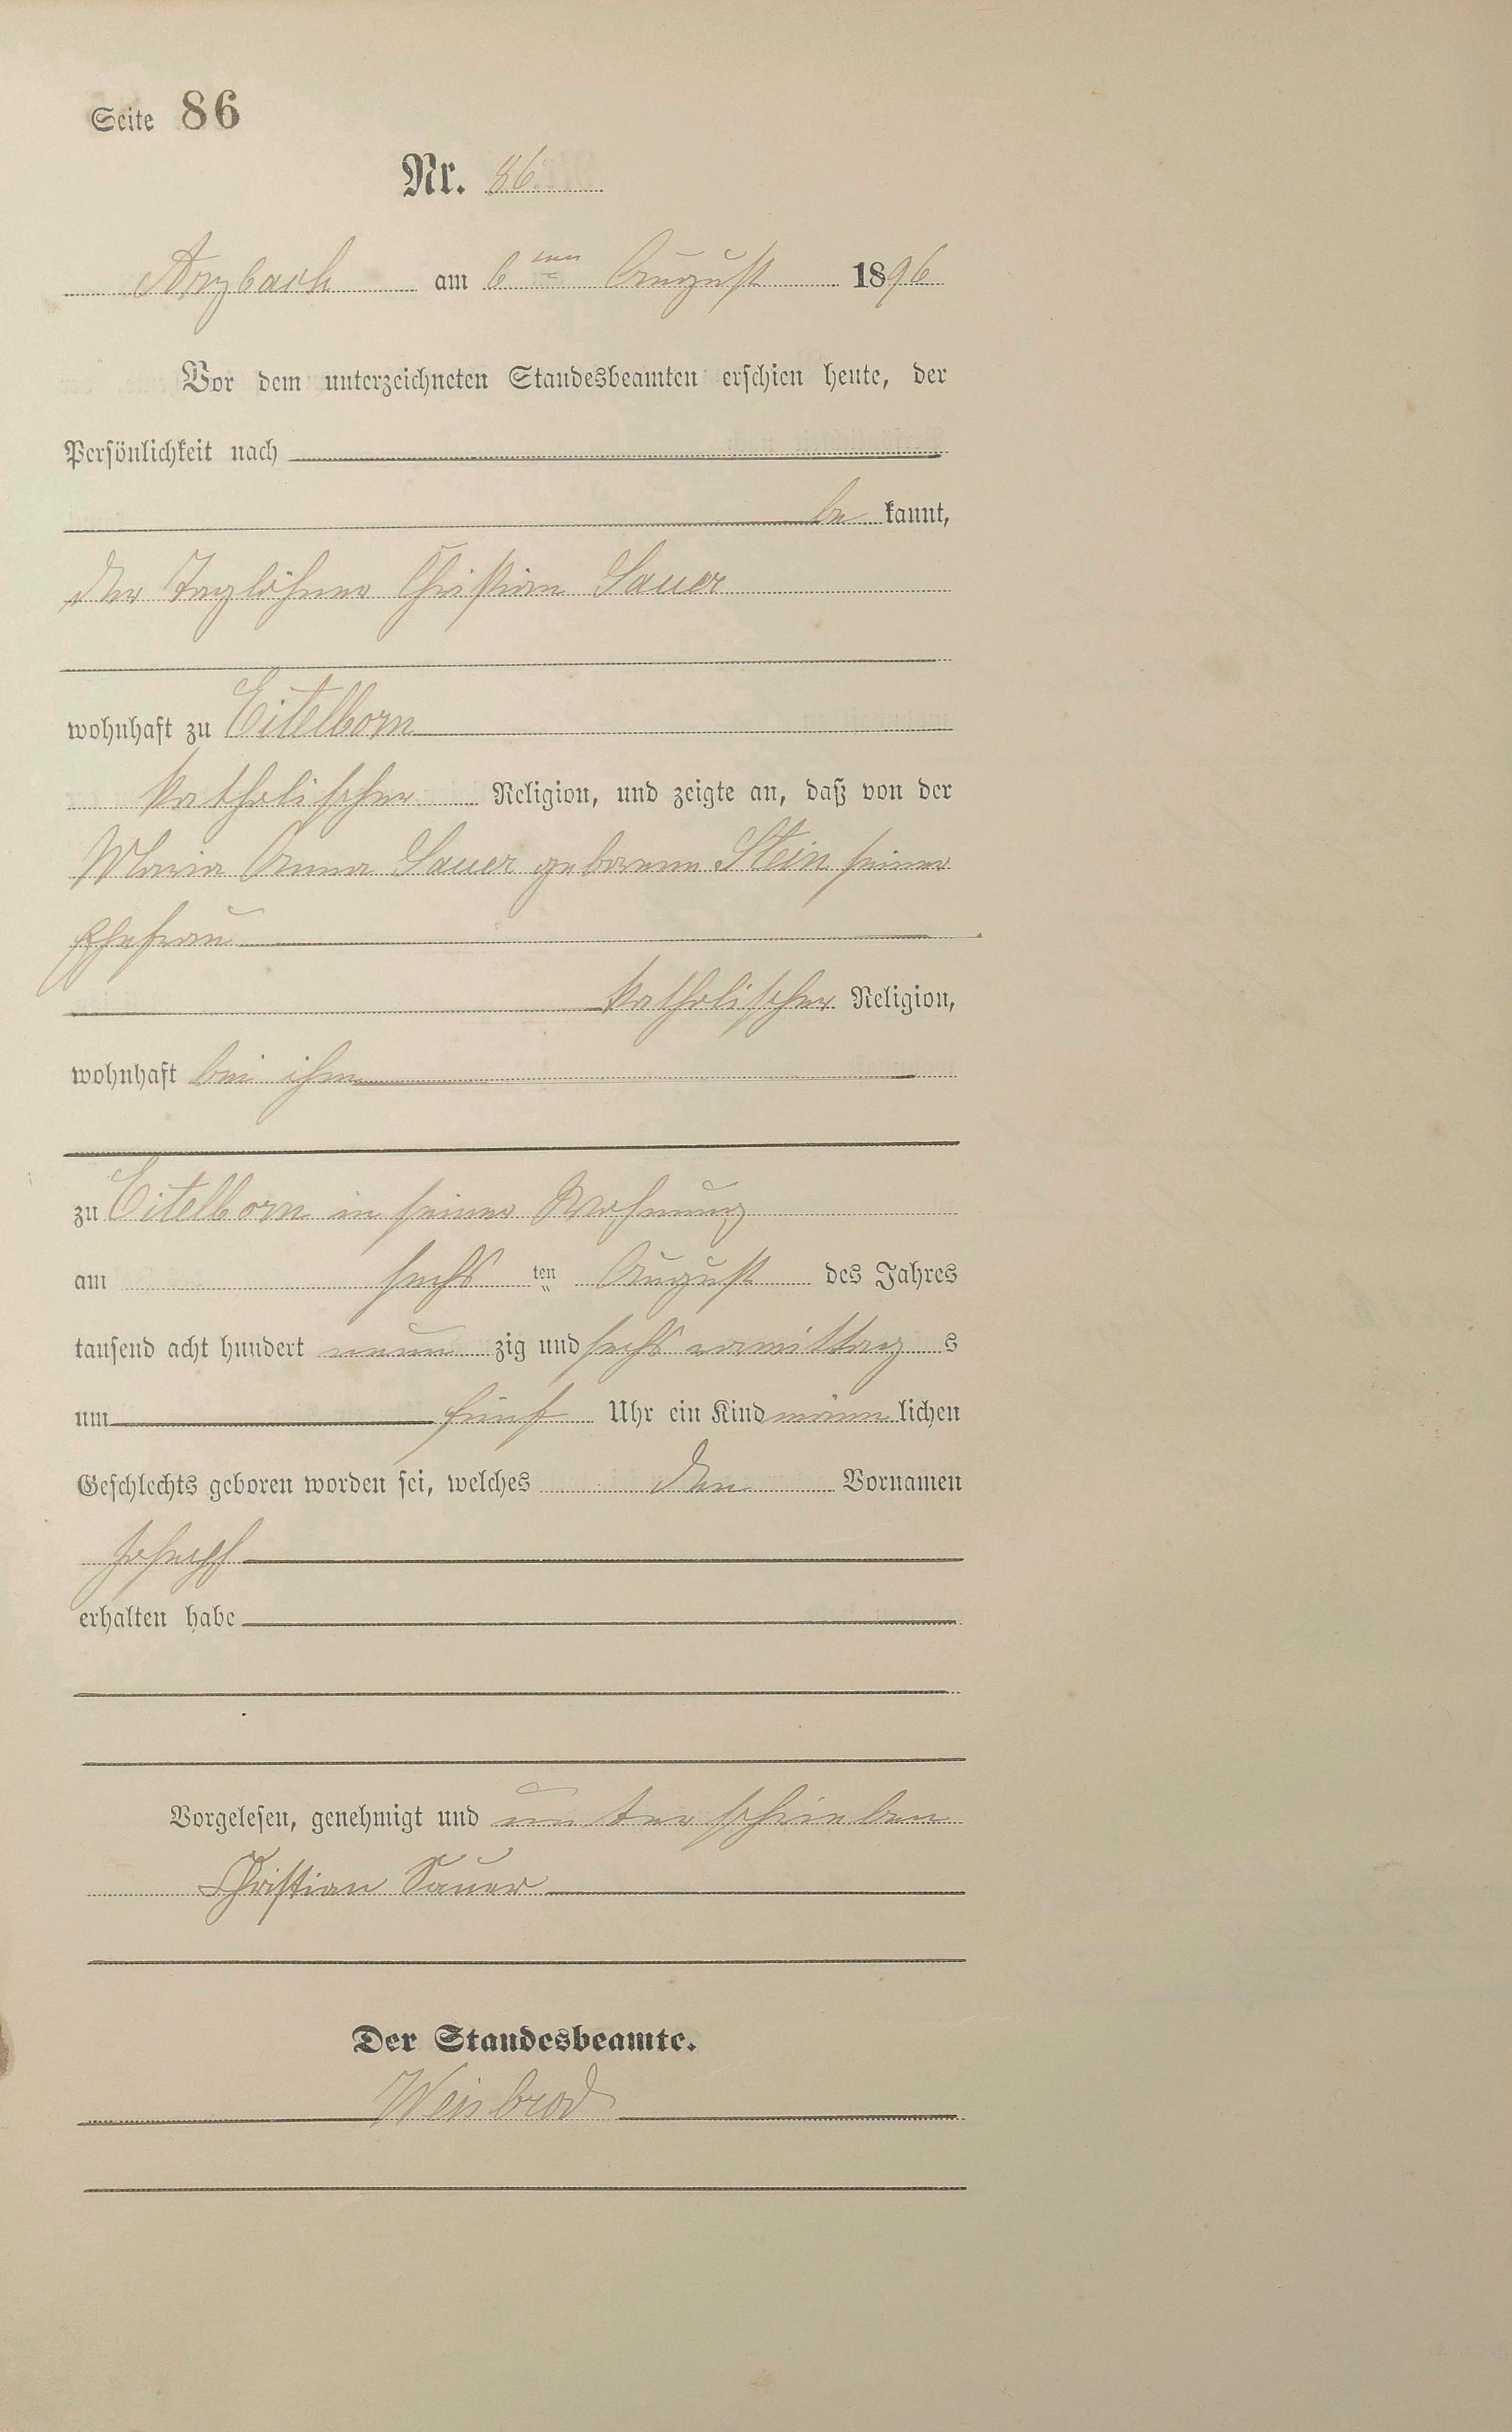 Seite 86
Nr. 86
Arzbach am 6ten August 1896
Vor dem unterzeichneten Standesbeamten erschien heute, der
Persönlichkeit nach
be kannt,
der Taglöhner Christian Sauer
wohnhaft zu Eitelborn
katholischer Religion, und zeigte an, daß von der
Maria Anna Sauer geborene Stein seiner
Ehefrau
katholischer Religion,
wohnhaft bei ihm
zu Eitelborn in seiner Wohnung
am sechs ten August des Jahres
tausend acht hundert neun zig und sechs vormittag s
um fünf Uhr ein Kind männ lichen
Geschlechts geboren worden sei, welches den Vornamen
Joseph
erhalten habe
Vorgelesen, genehmigt und unterschrieben
Christian Sauer
Der Standesbeamte.
Weisbrod